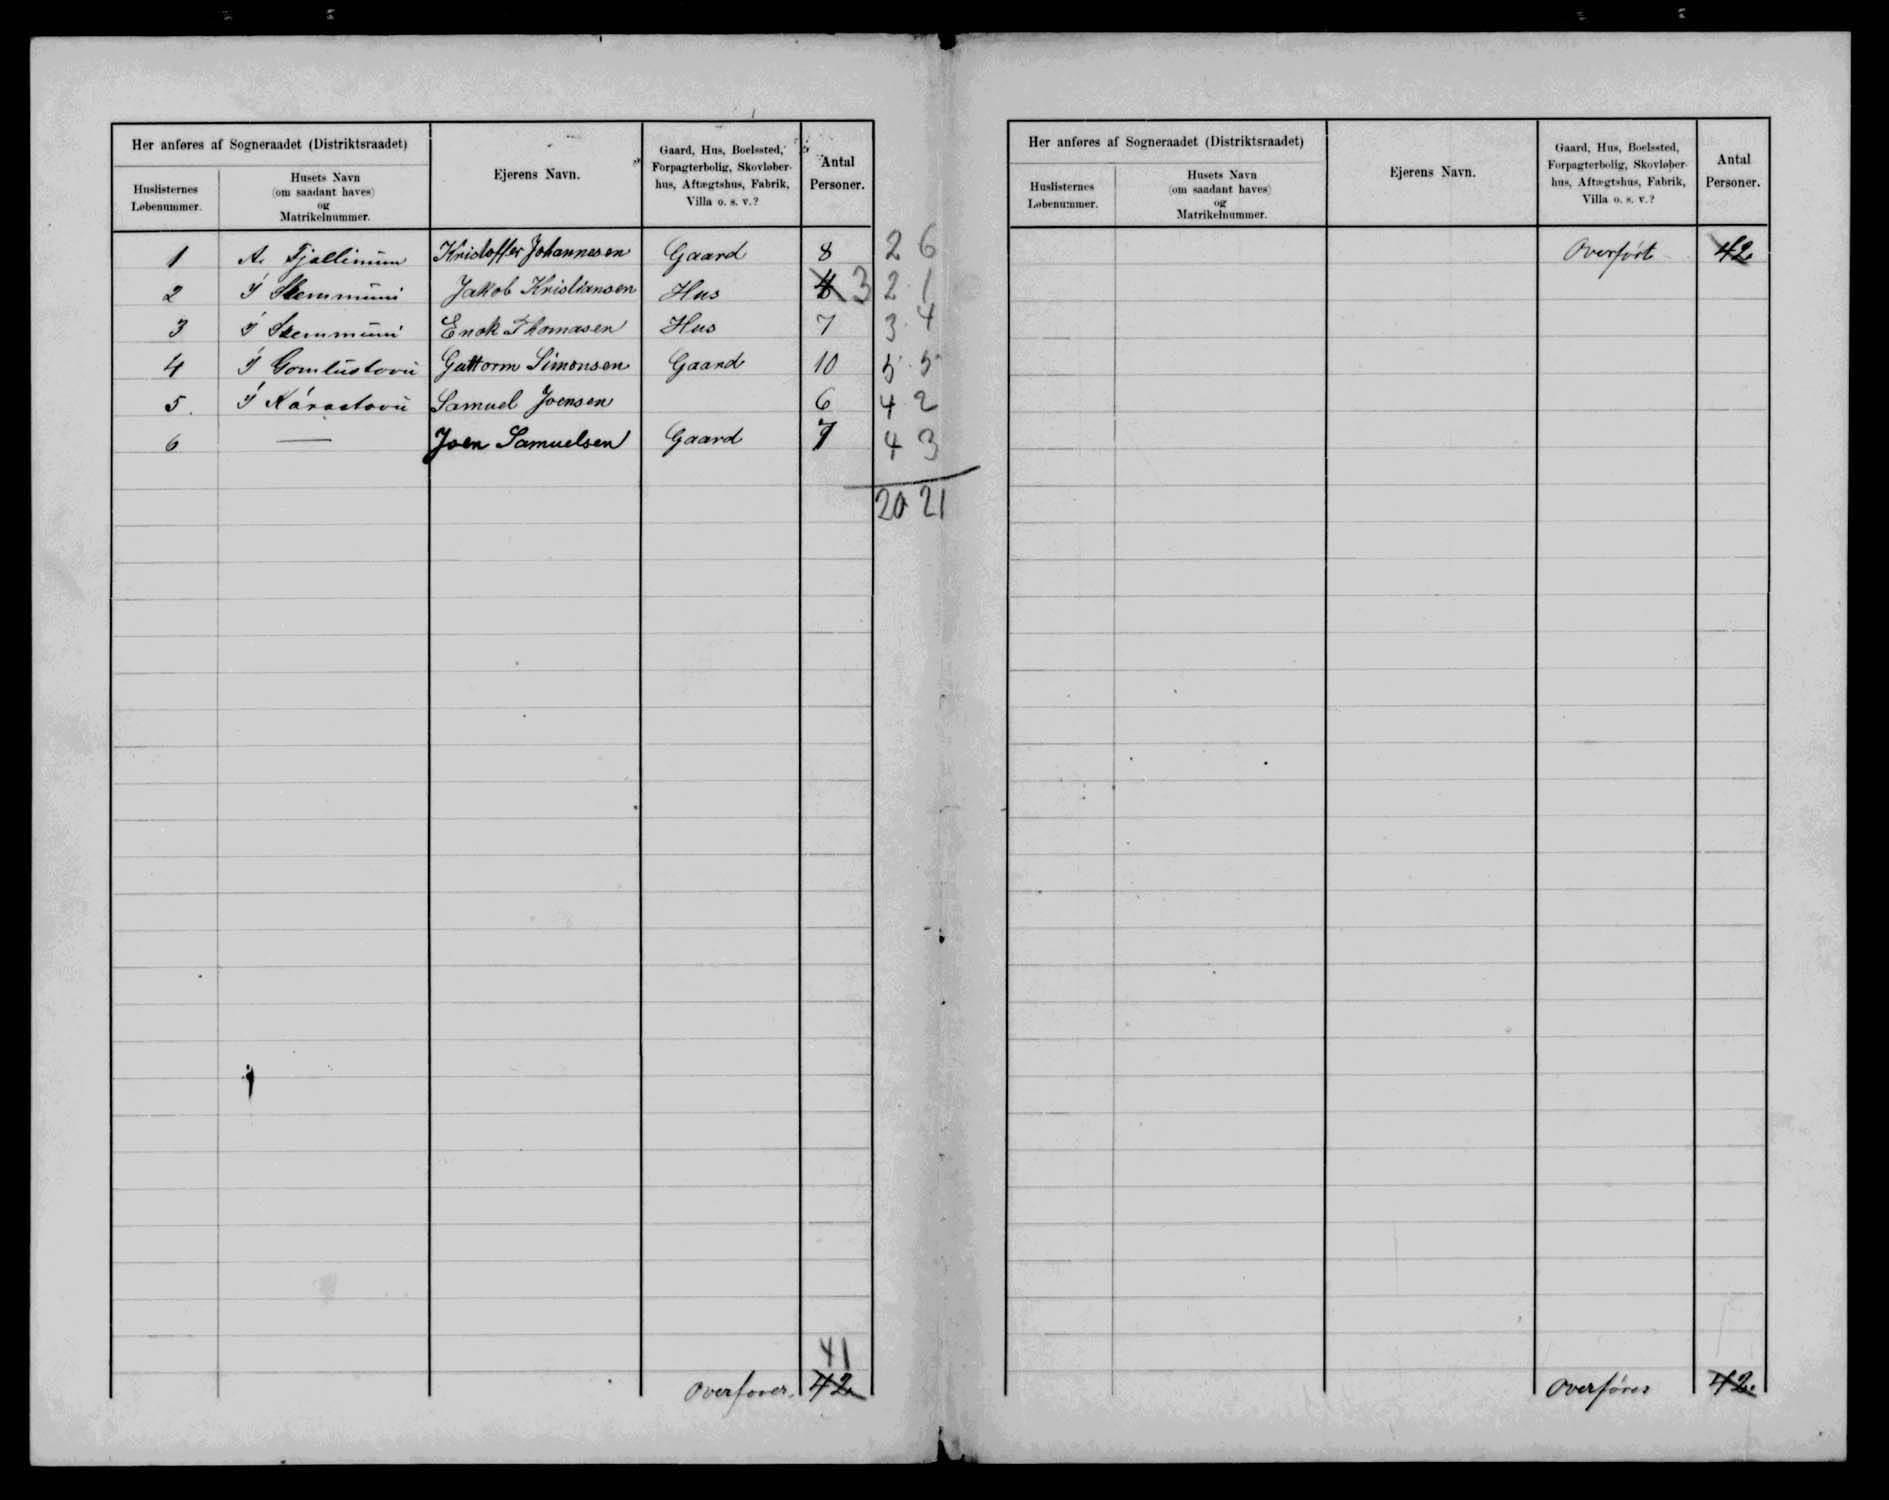 Her anføres af Sogneraadet (Distriktsraadet)
Huslisternes Løbenummer.
Husets Navn (om saadant haves) og Matrikelnummer.
Ejerens Navn.
Gaard, Hus, Boelssted, Forpagterbolig, Skovløberhus, Aftægtshus, Fabrik, Villa o. s. v.?
Antal Personer.
1 Á. Fjallinum Kristoffer Johannesen Gaard 8 2 6
2 Í Stemmuni Jakob Kristiansen Hus 4 3 2 1
3 Í Stemmuni Enok Thomasen Hus 7 3 4
4 Í Gomlustovu Guttorm Simonsen Gaard 10 5 5
5. Í Kárastovu Samuel Joensen 6 4 2
6 — Joen Samuelsen Gaard 7 4 3
20 21
41
Overføres 42
Her anføres af Sogneraadet (Distriktsraadet)
Huslisternes Løbenummer.
Husets Navn (om saadant haves) og Matrikelnummer.
Ejerens Navn.
Gaard, Hus, Boelssted, Forpagterbolig, Skovløberhus, Aftægtshus, Fabrik, Villa o. s. v.?
Antal Personer.
Overført 42
Overføres 42.